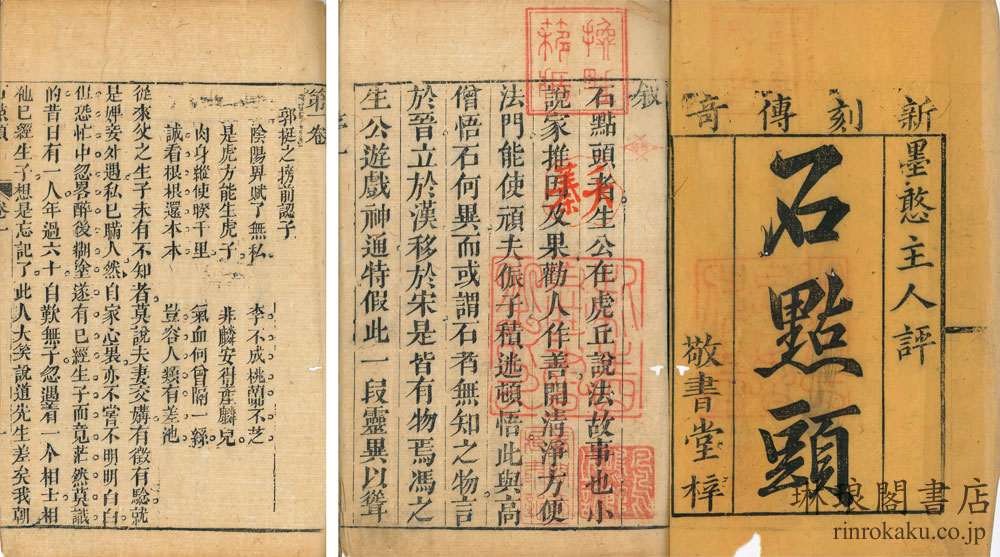 新刻傳奇
墨憨主人評
石點頭
敬書堂梓
琳琅閣書店
rinrokaku.co.jp
敘
石點頭者生公在虎丘說法故事也小
說家推因及果勸人作善開清淨方便
法門能使頑夫倀子積迷頓悟此與高
僧悟石何異而或謂石者無知之物言
於晉立於漢移於宋是皆有物焉馮之
生公遊戲神通特假此一段靈異以聳
第一卷
郭挺之榜前認子
陰陽畀賦了無私 李不成桃蘭不芝
是虎方能生虎子 非麟安得產麟兒
肉身縱使睽千里 氣血何曾隔一絲
試看根根還本本 豈容人類有差池
從來父之生子未有不知者莫說夫妻交媾有徵有驗就
是婢妾外遇私己瞞人然自家心裏亦不嘗不明明白白
但恐忙中忽畧醉後糊塗遂有已經生子而竟茫然莫識
的昔日有一人年過六十自歎無子忽遇着一个相士相
他已經生子想是忘記了此人大笑說道先生差矣我朝